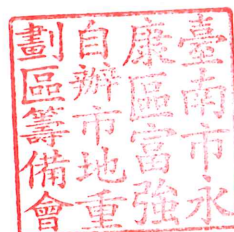 臺南市永
康區富強
自辦市地重
劃區籌備會